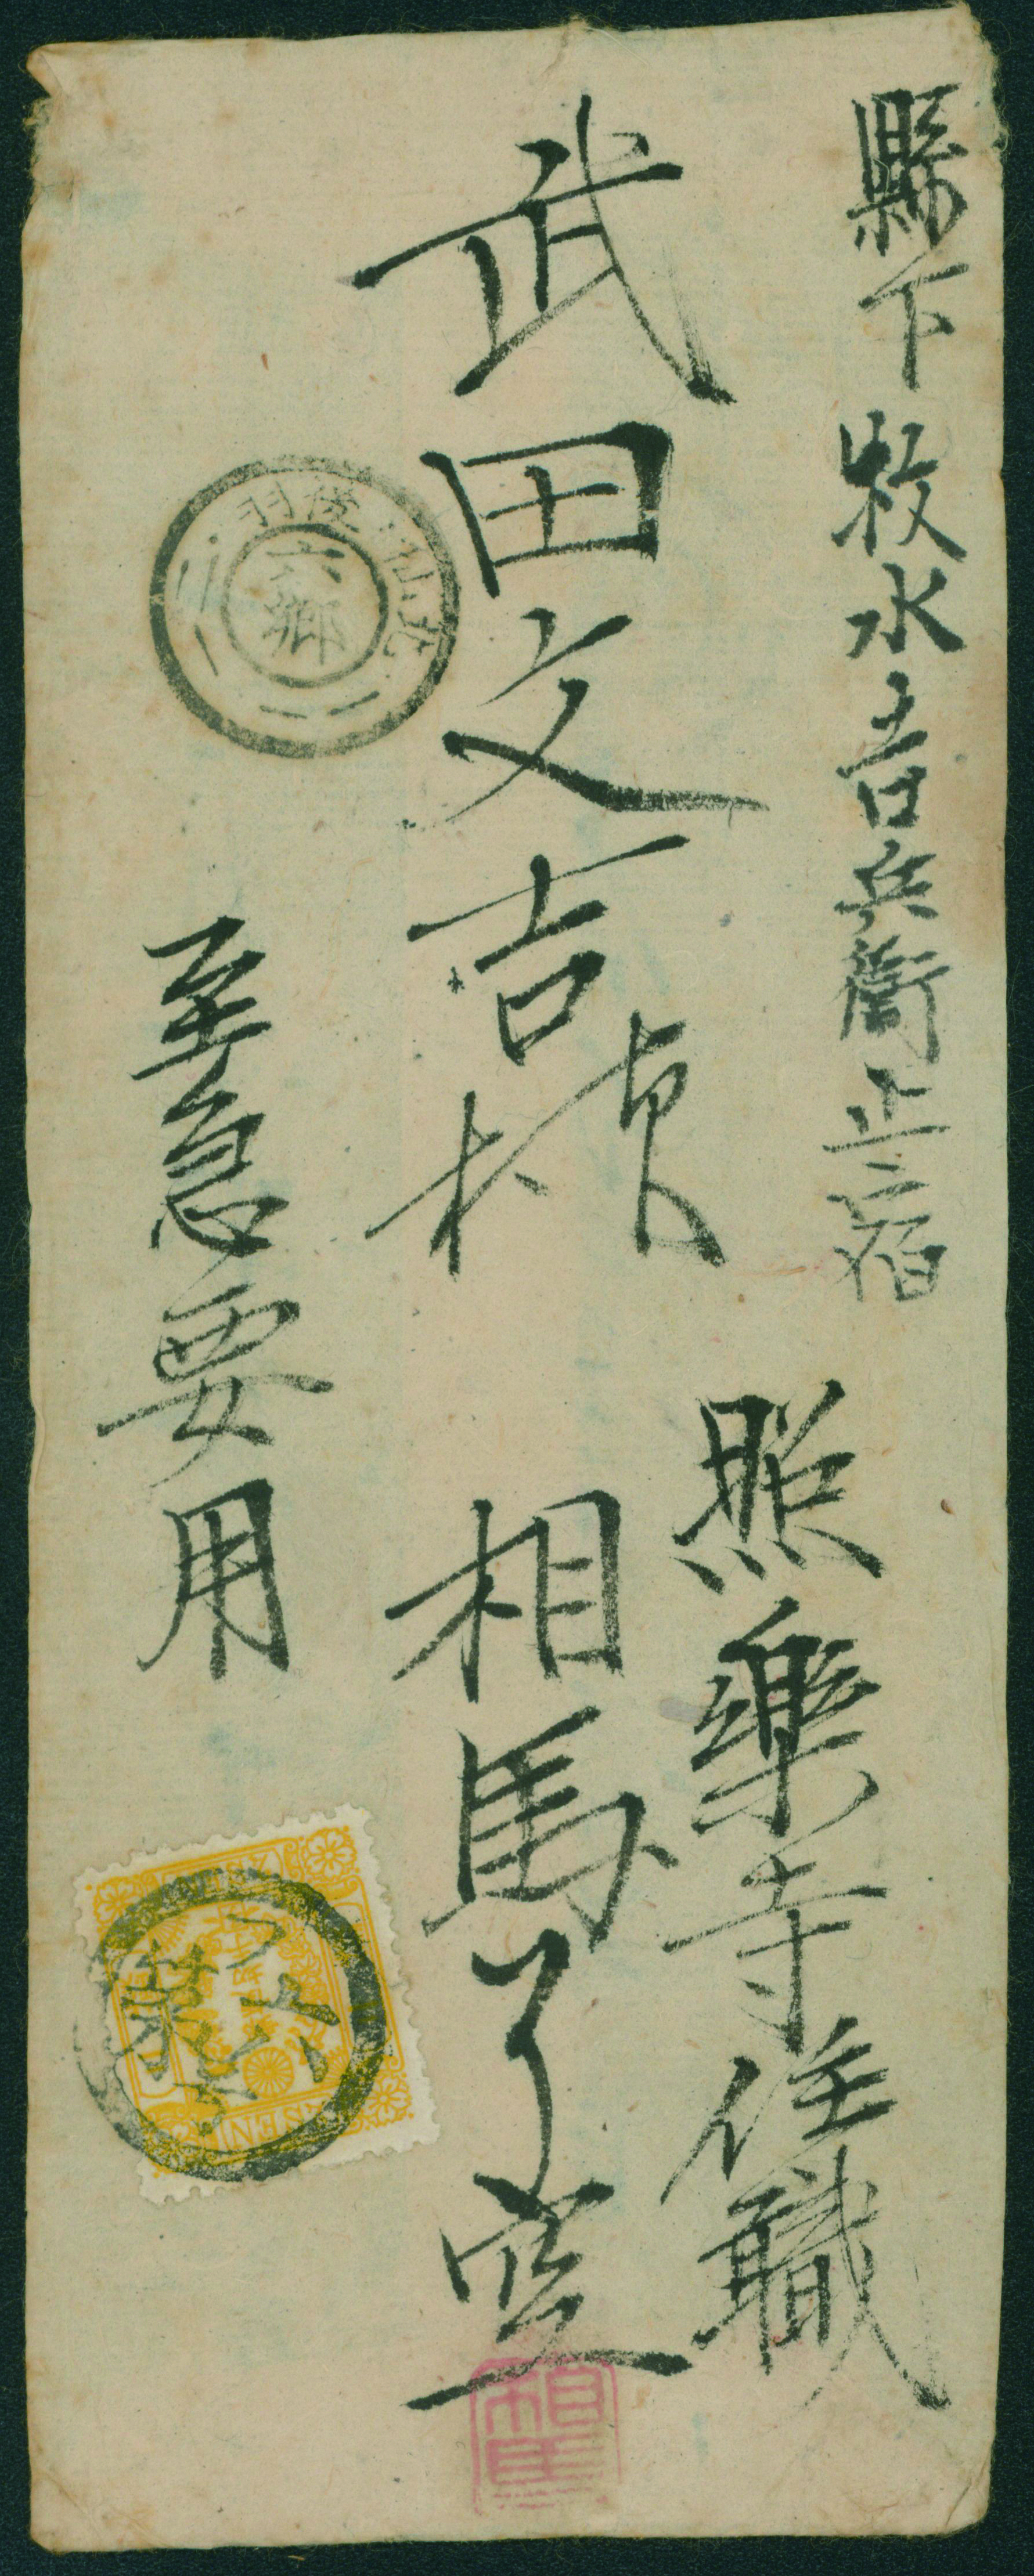 縣下牧水吉兵衛止宿
武田文吉様
照樂寺住職
相馬了空
至急要用
羽後 仙北
六郷
SEN
相馬